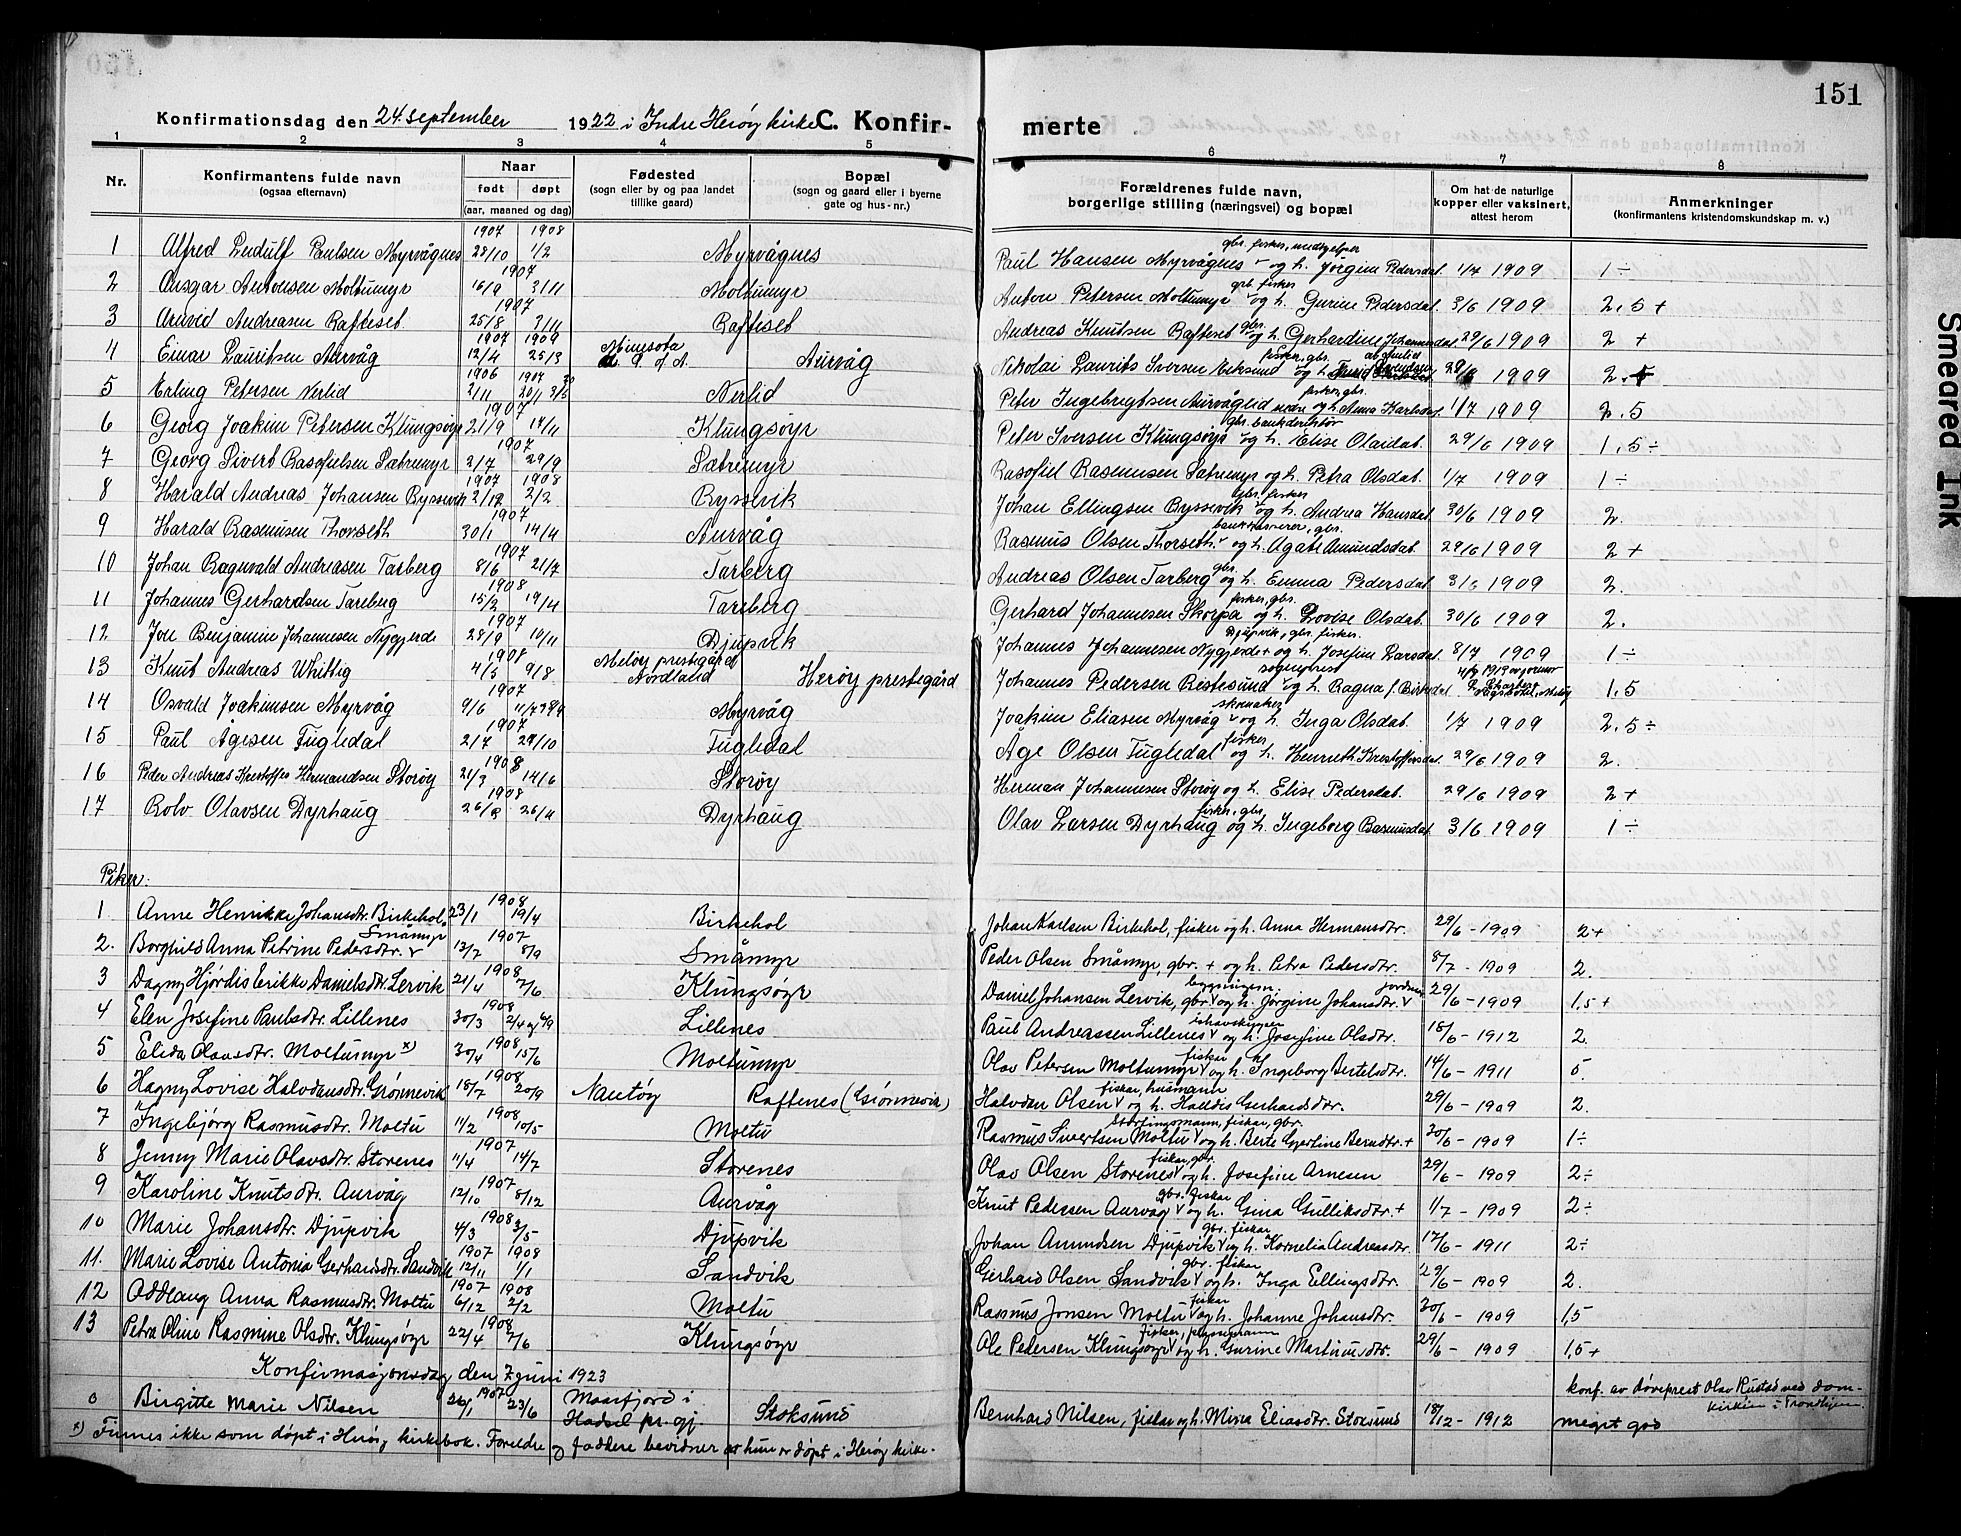 151
Konfirmationsdag den 24. september 1922 i Indre Herøy kirke C. Konfir- merte
1 2 3 4 5 6 7 8
Nr. Konfirmantens fulde navn (ogsaa efternavn) Naar født døpt (aar, maaned og dag) Fødested (sogn eller by og paa landet tillike gaard) Bopæl (sogn og gaard eller i byerne gate og hus-nr.) Forældrenes fulde navn, borgerlige stilling (næringsvei) og bopæl Om hat de naturlige kopper eller vaksinert, attest herom Anmerkninger (konfirmantens kristendomskundskap m. v.)
1 Alfred Ludulf Paulsen Myrvågnes 1907 28/10 1908 1/2 Myrvågnes Paul Hansen Myrvågnes og h. Jörgine Pedersdat. 1/7 1909 1 ÷
2 Ansgar Antonsen Moltumyr 1907 16/9 3/11 Moltumyr Anton Petersen Moltumyr gbr. fisker og h. Gurine Pedersdat. 3/6 1909 2,5 +
3 Arnvid Andreasen Rafteset 1907 25/8 3/11 Rafteset Andreas Knutsen Rafteset gbr. og h. Gerhardine Johannesdat. 29/6 1909 2 +
4 Einar Lauritsen Aurvåg 1907 12/4 1909 25/3 Minesota U. S. of A. Aurvåg Nikolai Laurits Iversen Eiksund fisker, gbr. og h. 29/6 1909
5 Erling Petersen Nerlid 1906 2/11 1907 20/1 Nerlid Peter Ingebregtsen Aurvåglid nedre fisker, gbr. og h. Anna Karlsdat. 1/7 1909 2.5
6 Georg Joakim Petersen Klungsöyr 1907 21/9 14/11 Klungsöyr Peter Iversen Klungsöyr gbr. bankdirektör og h. Elise Olaidat. 29/6 1909 1,5 ÷
7 Georg Sivert Rasofielsen Sætremyr 1907 2/7 29/9 Sætremyr Rasofiel Rasmussen Sætremyr og h. Petra Olsdat. 1/7 1909 1 ÷
8 Harald Andreas Johansen Ryssevik 1907 2/12 1908 2/2 Ryssevik Johan Ellingsen Ryssevik gbr. fisker og h. Andrea Hansdat. 30/6 1909 2.
9 Harald Rasmussen Thorseth 1907 30/1 14/4 Aurvåg Rasmus Olsen Thorseth bankkasserer, gbr. og h. Agate Amundsdat. 29/6 1909 2 +
10 Johan Ragnvald Andreasen Tarberg 1907 8/6 21/7 Tarberg Andreas Olsen Tarberg gbr. og h. Emma Pedersdat. 3/6 1909 2.
11 Johannes Gerhardsen Tarberg 1908 15/2 19/4 Tarberg Gerhard Johannesen Skorpa fisker, gbr. og h. Lovise Olsdat. 30/6 1909 2.
12 Jon Benjamin Johannesen Nygjerde 1907 28/9 10/11 Djupvik Johannes Johannesen Nygjerde + Djupvik, gbr. fisker. og h. Josefine Larsdat. 8/7 1909 1 ÷
13 Knut Andreas Whittig 1908 4/5 9/8 Meløy prestegård Nordland Herøy prestegård Johannes Pedersen Ristesund sogneprest og h. Ragna f. Birkedal 1,5
14 Osvald Joakimsen Myrvåg 1907 9/6 Myrvåg Joakim Eliasen Myrvåg skomaker og h. Inga Olsdat. 1/7 1909 2.5 ÷
15 Paul Ågesen Fugledal 21/7 29/10 Fugledal Åge Olsen Fugledal fisker og h. Henrikth Kristoffersdat. 29/6 1909 2.
16 Peder Andreas Kristoffer Hermandsen Storöy 1908 21/3 14/6 Storöy Herman Johannesen Storöy og h. Elise Pedersdat. 29/6 1909 2 +
17 Rolv Olavsen Dyrhaug 1908 26/4 Dyrhaug Olav Larsen Dyrhaug fisker, gbr. og h. Ingeborg Rasmusdat. 3/6 1909 1 ÷
Piker:
1 Anne Henrikke Johansdtr. Birkehol 1908 23/1 19/4 Birkehol Johan Karlsen Birkehol, fisker og h. Anna Hermansdtr. 29/6 - 1909 2 +
2. Borghild Anna Petrine Pedersdtr. Småmyr 1907 13/7 8/9 Småmyr Peder Olsen Småmyr, gbr. + og h. Petra Pedersdtr. 8/7 - 1909 2.
3 Dagny Hjørdis Erikke Danielsdtr. Lervik 1908 21/4 7/6 Klungsøyr Daniel Johansen Lervik, gbr. og h. Jørgine Johansdtr. 29/6 - 1909 1,5 +
4 Elen Josefine Paulsdtr. Lillenes 1908 30/3 Lillenes Paul Andreassen Lillenes ishavskipper og h. Josefine Olsdtr. 18/6 - 1912 2.
5 Elida Olavsdtr. Moltumyr x) 1908 30/4 15/6 Moltumyr Olav Petersen Moltumyr fiskar og h. Ingeborg Bertelsdtr. 14/6 - 1911
6 Hagny Lovise Halvdansdtr. Grønnevik 1908 18/7 20/9 Nautøy Raftenes (Grønnevik) Halvdan Olsen fiskar, husmann og h. Halldis Gerhardsdtr. 29/6 - 1909 2.
7 Ingebjørg Rasmusdtr. Moltu 1908 11/2 10/5 Moltu Rasmus Sivertsen Moltu stortingsmann, fiskar, gbr. og h. Berte Gjertine Berndtr. + 30/6 - 1909 1 ÷
8 Jenny Marie Olavsdtr. Storenes 1907 11/4 14/7 Storenes Olav Olsen Storenes fiskar, gbr. og h. Josefine Arnesen 29/6 - 1909 2 ÷
9 Karoline Knutsdtr. Aurvåg 1907 12/10 8/12 Aurvåg Knut Pedersen Aurvåg gbr. fiskar og h. Gina Gulliksdtr. + 1/7 - 1909 2 ÷
10 Marie Johansdtr. Djupvik 1908 4/3 3/5 Djupvik Johan Amundsen Djupvik gbr. fiskar og h. Kornelia Andreasdtr. 17/6 - 1911 2 ÷
11. Marie Lovise Antonia Gerhardsdtr. Sandvik 1907 12/11 1908 1/1 Sandvik Gerhard Olsen Sandvik gbr. fiskar og h. Inga Ellingsdtr. 29/6 - 1909 2.
12 Oddlaug Anna Rasmusdtr. Moltu 1907 6/12 1908 2/2 Moltu Rasmus Jonsen Moltu fisker og h. Johanne Johansdtr. 30/6 - 1909 1,5
13 Petra Oline Rasmine Olsdtr. Klungsøyr 1908 22/4 7/6 Klungsøyr Ole Pedersen Klungsøyr fisker, og h. Gurine Martinusdtr. 29/6 - 1909 1,5 +
Konfirmasjonsdag den 7. juni 1923
0 Birgitte Marie Nilsen 1907 26/1 23/6 i Hadsel pr.gj. Stoksund Bernhard Nilsen, fiskar og h. Mina Eliasdtr. Stoksund 18/12 - 1912 konf. av døveprest Olav Rustad ved domkirkien i Trondhjem. meget god
x) Finnes ikke som døpt i Herøy kirkebok. Foreldre og faddere bevidner at hun er døpt i Herøy kirke.
Smeared Ink